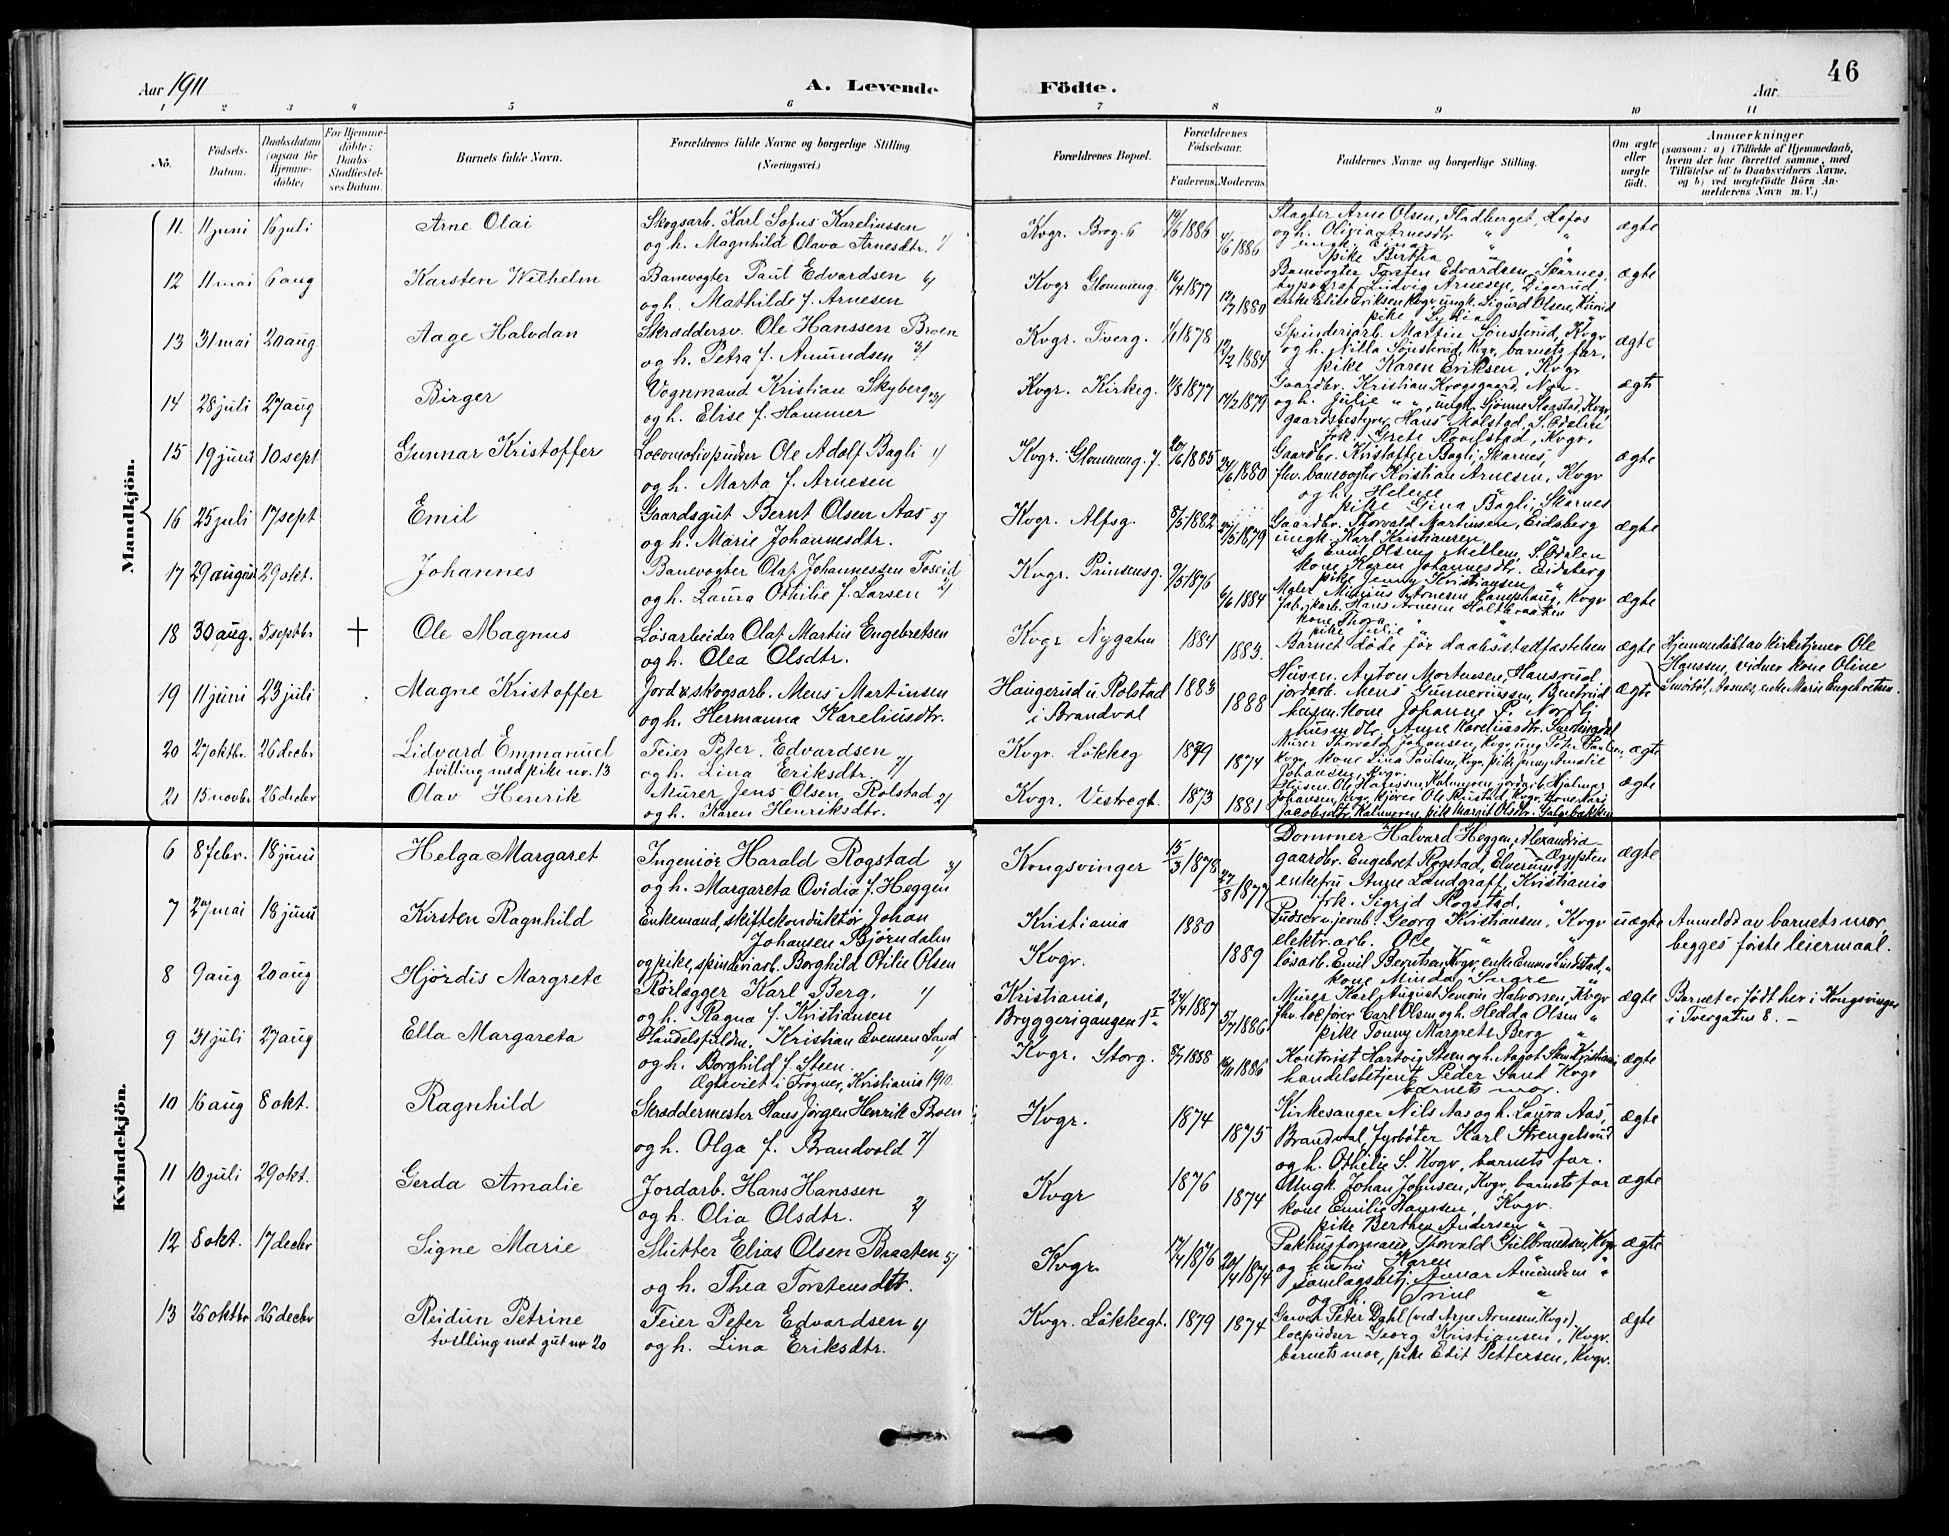 46
Aar 1911
A. Levende
Födte.
Aar
1 2 3 4 5 6 7 8 9 10 11
No.
Födsels-Datum.
Daabsdatum (ogsaa for Hjemme-döbte)
For Hjemme-döbte: Daabs-Stadfæstel-ses Datum.
Barnets fulde Navn.
Forældrenes fulde Navne og borgerlige Stilling. (Næringsvei.)
Forældrenes Bopæl.
Forældrenes Födselsaar.
Faderens. Moderens.
Faddernes Navne og borgerlige Stilling.
Om ægte eller uægte födt.
Anmærkninger (saasom: a) i Tilfælde af Hjemmedaab, hvem der har forrettet samme, med Tilföielse af to Daabsvidners Navne, og b) ved uægtefödte Börn An-melderens Navn m. V.)
Mandkjön.
11. 11 juni 16 juli Arne Olai
Skogsarb. Karl Sofus Kareliussen
og h. Magnhild Olava Arnesdtr. 1/
Kvgr. Brog. 6 1886 1886
Slagter Arne Olsen, Fladberget, Hofos
og h. Oligia Arnesdtr " "
ungk. Einar " "
pike Bertha " "
ægte
12 11 mai 6 aug Karsten Wilhelm
Banevogter Paul Edvardsen 6/
og h. Mathilde f. Arnesen
Kvgr Glommeng. 16/4 1877 12/7 1880
Banevogter Torsten Edvardsen, Skarnes,
typograf Ludvig Arnesen, Digerud,
enke Elise Eriksen Kvgr ungk. Sigurd Olsen,
ægte
13 31 mai 20 aug Aage Halvdan
Skræddersv. Ole Hanssen Broen
og h. Petra f. Amundsen 3/
Kvgr. Tverg. 1878 12/2 1884
Spinderiarb. Martin Sönsterud, Kvgr
og h. Nilla Sönsterud, Kvgr, barnets far,
pike Karen Eriksen, Kvgr
ægte
14 28 juli 27 aug Birger
Vognmand Kristian Skyberg
og h. Elise f. Hammer
Kvgr. Kirkeg. 1877 14/2 1879
Gaardbr. Kristian Krogsgaard, Nor
og h. Julie " ", ungk. Kvgr,
gaardsbestyrer Hans Molstad, S. Odalen
frk. Grete Kvgr.
ægte
15 19 juni 10 sept Gunnar Kristoffer
Locomotivpudser Ole Adolf Bagli 1/
og h. Marta f. Arnesen
Kvgr. Glommeng. 7. 20/6 1885 24/6 1880
Gaardbr. Kristoffer Bagli, Skarnes,
fhv. banevogter Kristian Arnesen, Kvgr
og h. Helene "
pike Gina Bagli, Skarnes
ægte
16 25 juli 17 sept Emil
Gaardsgut Bernt Olsen Aas 5/
og h. Marie Johannesdtr.
Kvgr. Alfsg. 8/5 1882 1879
Gaardbr. Thorvald Martinsen, Eidsberg
ungk. Karl Kristiansen,
" Emil Olsen, Mellem, S. Odalen
kone Karen Johannesdtr. Eidsberg
pike Jenny Kristiansen "
ægte
17 29 august 29 okt. Johannes
Banevogter Olaf Johannessen Foseid
og h. Laura Othilie f. Larsen 2/
Kvgr. Prinsensg. 9/5 1876 6/6 1884
Maler Arnesen Kvgr
fabrikarb. Hans Arnesen Holtbraaten
kone Thora " "
pike Julie " "
ægte
18 30 aug. 5 septbr + Ole Magnus
Løsarbeider Olaf Martin Engebretsen
og h. Olea Olsdtr.
Kvgr Nygaten 1884 1883.
Barnet døde før daabsstadfæstelsen
ægte
Hjemmedøbt av kirketjener Ole
Hanssen, vidner kone Oline
Aasnes, enke Marie Engebretsen.
19 11 juni 23 juli Magne Kristoffer
Jord & skogsarb. Mens Martinsen
og h. Hermanna Kareliusdtr.
Haugerud u. Rolstad
i Brandval
1883 1888
Husm. Anton Mortensen, Hansrud
jordarb. Mens Gunneriussen, Brustrud
husm. kone Johanne P. Nordli
husm. dtr. Anne Kareliusdtr.
ægte
20 27 oktbr. 26 decbr Lidvard Emmanuel
tvilling med pike nr. 13
Feier Peter Edvardsen
og h. Lina Eriksdtr. 7/
Kvgr. Løkkeg 1879 1874
Murer Thorvald Johansen, Kvgr, ung Peter
Kvgr, kone Lina Paulsen, Kvgr, pike Jenny Amalie
Johansen Kvgr.
ægte
21 15 novbr 26 decbr Olav Henrik
Murer Jens Olsen Rolstad 2/
og h. Karen Henriksdtr.
Kvgr. Vestregt. 1873 1881
Husm. Ole Hanssen, Kalneren, jordgut Hjalmar
Johansen, Kvgr, kjører Ole Rustad, Kvgr, kone Kari
Jacobsdtr, Kalneren, pike Margit Olsdtr. Galgebakken
ægte
Kvindekjön.
6 8 febr. 18 juni Helga Margaret
Ingeniør Harald Rogstad
og h. Margareta Ovidia f. Heggen 3/
Kongsvinger 15/3 1878 27/8 1877
Dommer Halvard Heggen, Alexandria
Ægypten
gaardbr. Engebret Rogstad, Elverum,
enkefru Anne Landgraff, Kristiania
frk. Sigrid Rogstad, "
ægte
7 27 mai 18 juni Kirsten Ragnhild
Enkemand, skiftekonduktør, Johan
Johansen Bjørndalen
og pike, spinderiarb. Borghild Otilie Olsen
Kristiania
Kvgr.
1880 1889
Pudser v. jernb. Georg Kristiansen, Kvgr
elektr. arb. Ole " "
løsarb. Emil Berntsen, Kvgr, enke Emma Lindstad, "
kone Minda Singre "
uægte
Anmeldt av barnets mor,
begges første leiermaal.
8 9 aug 20 aug Hjørdis Margrete
Rørlægger Karl Berg, 1/
og h. Ragna f. Kristiansen
Kristiania,
Bryggerigangen 1 II
24/1 1887 5/7 1886
Murer Karl August Simons Halvorsen, Kvgr
fhv. locfører Carl Olsen og h. Hedda Olsen "
pike Tonny Margrete Berg "
ægte
Barnet er født her i Kongsvinger
i Tvergaten 8. –
9 31 juli 27 aug Ella Margareta
Handelsfuldm. Kristian Evensen Sand
og h. Borghild f. Steen. 1/
Ægteviet i Frogner, Kristiania 1910.
Kvgr. Storg. 1888 1886
Kontorist Hartvig Steen og h. Aagot Steen Kristiania
handelsbetjent Peder Sand Kvgr
barnets mor.
ægte
10 16 aug 8 okt. Ragnhild
Skræddermester Hans Jørgen Henrik Broen
og h. Olga f. Brandvold 7/
Kvgr. 1874 1875
Kirkesanger Nils Aas og h. Laura Aas,
Brandval, fyrbøter Karl Strengelsrud
og h. Othilie S. Kvgr, barnets far.
ægte
11 10 juli 29 okt. Gerda Amalie
Jordarb. Hans Hanssen
og h. Olia Olsdtr. 2/
Kvgr 1876 1874
Ungk. Johan Johnsen, Kvgr, barnets far
kone Emilie Hanssen, Kvgr.
pike Berthea Andersen "
ægte
12 8 okt. 17 decbr Signe Marie
Slutter Elias Olsen Braaten 5/
og h. Thea Torstensdtr.
Kvgr. 17/4 1876 20/4 1874
Pakhusformand Thorvald Gulbrandsen, Kvgr
og hustru Karen " "
samlagsbetj. Annar Amundsen "
og h. Trine "
ægte
13 26 oktbr 26 decbr Reidun Petrine
tvilling med gut nr 20
Feier Peter Edvardsen 6/
og h. Lina Eriksdtr.
Kvgr. Løkkegt. 1879 1874
Garver Peter Dahl (ved Arne Arnesen, Kvgr)
locpudser Georg Kristiansen, Kvgr.
barnets mor, pike Edit Pettersen, Kvgr.
ægte